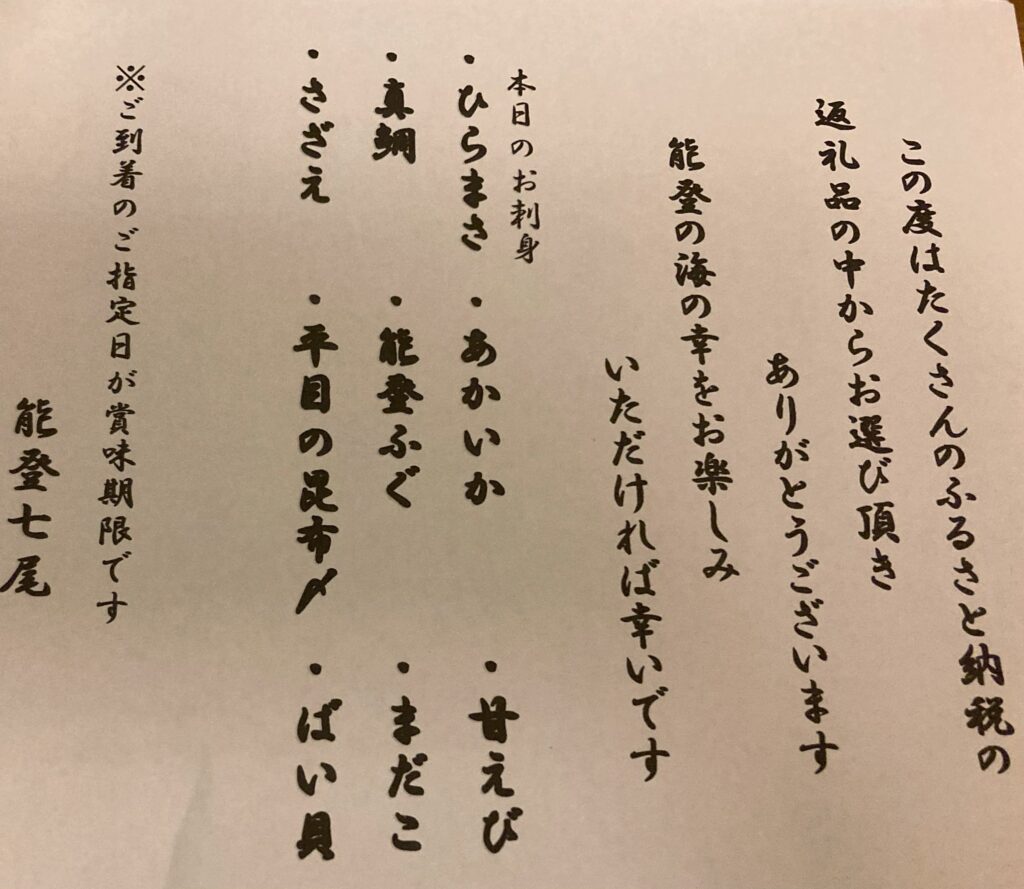 この度はたくさんのふるさと納税の
返礼品の中からお選び頂き
ありがとうございます
能登の海の幸をお楽しみ
いただければ幸いです
本日のお刺身
・ひらまさ ・あかいか ・甘えび
・真鯛 ・能登ふぐ ・まだこ
・さざえ ・平目の昆布〆 ・ばい貝
※ご到着のご指定日が賞味期限です
能登七尾